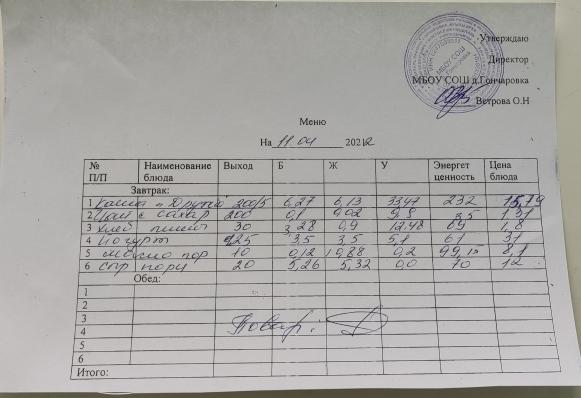 Утверждаю
Директор
МБОУ СОШ д.Гончаровка
Ветрова О.Н
Меню
На 11.04 2022
№ П/П Наименование блюда Выход Б Ж У Энергет ценность Цена блюда
Завтрак:
1 Каша "Дружба" 200/5 6,27 6,13 33,47 232 15,79
2 Чай с сахар 200 0,1 0,02 9,8 1,31
3 Хлеб пшен 30 3,28 0,9 12,48 69 1,8
4 Йогурт 125 3,5 3,5 5,1 61 31
5 масло пор 10 0,12 10,88 0,2 99,15 8,1
6 Сыр порц 20 5,26 5,32 0,0 70 12
Обед:
1
2
3
4
5
6
Повар:
Итого: